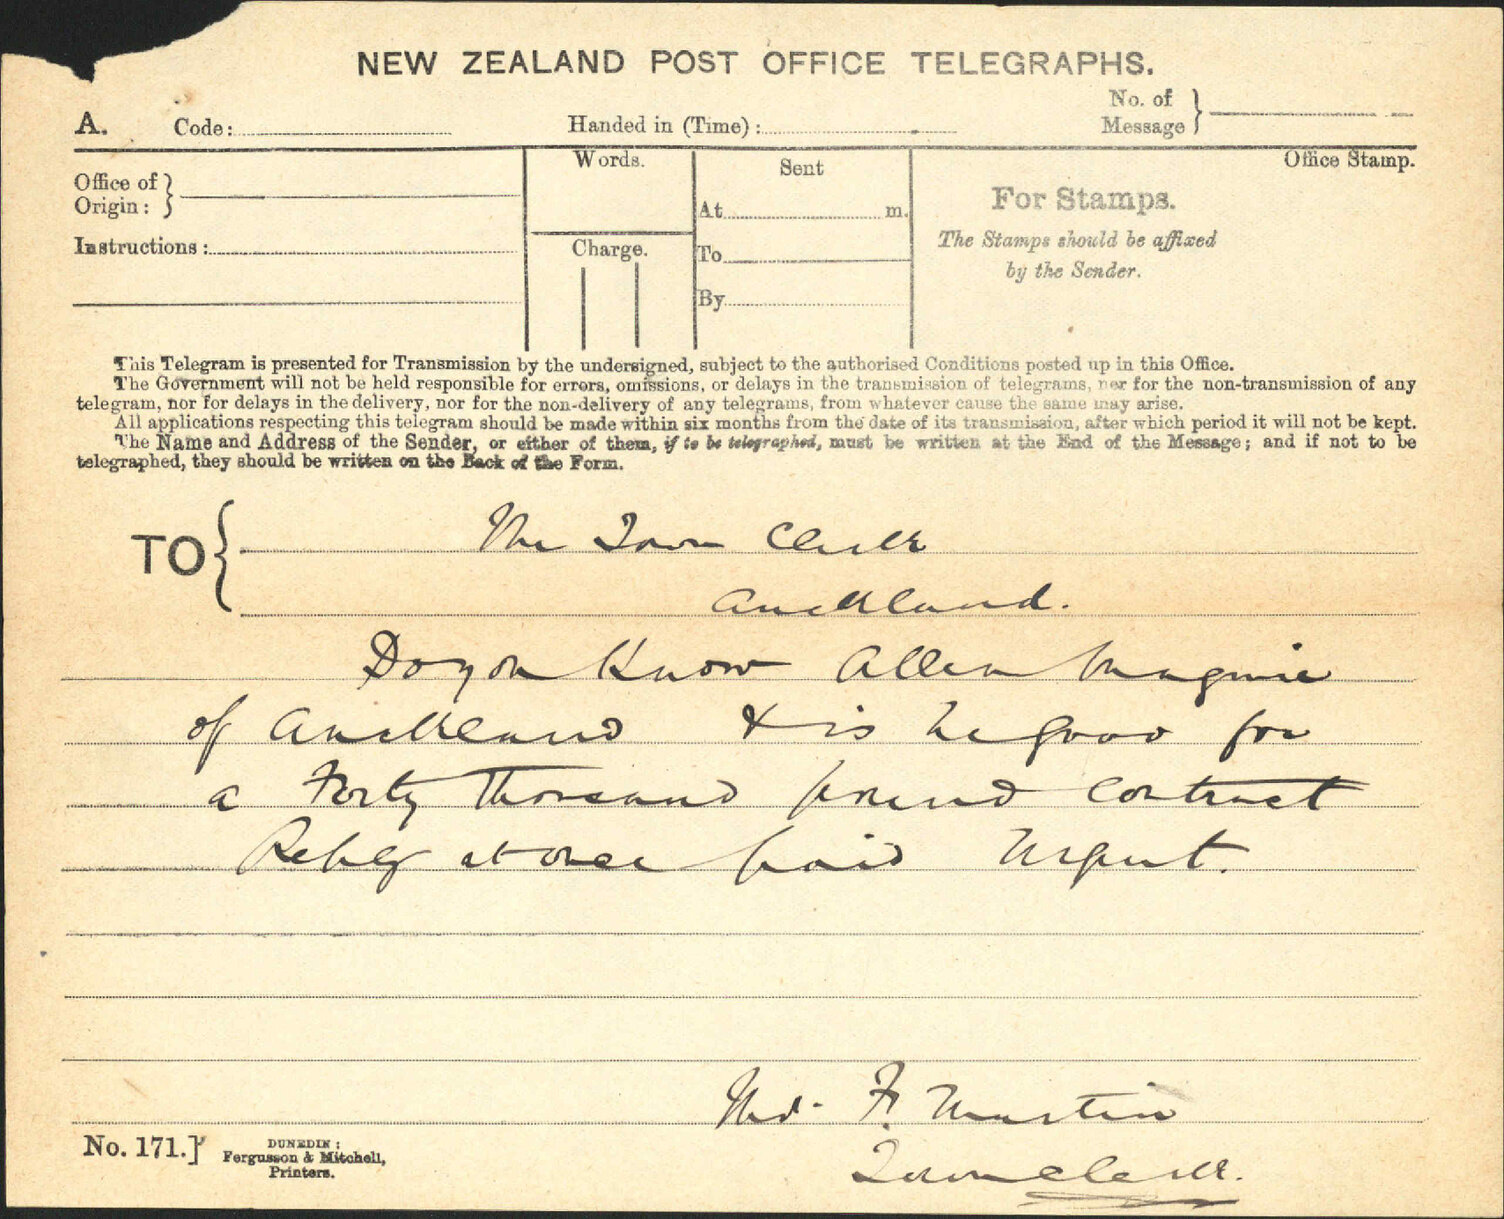 NEW ZEALAND POST OFFICE TELEGRAPHS.
A. Code: Handed in (Time): No. of Message }
Office of Origin: }
Instructions:
Words.
Charge.
Sent
At m.
To
By
Office Stamp.
For Stamps.
The Stamps should be affixed
by the Sender.
This Telegram is presented for Transmission by the undersigned, subject to the authorised Conditions posted up in this Office.
The Government will not be held responsible for errors, omissions, or delays in the transmission of telegrams, nor for the non-transmission of any
telegram, nor for delays in the delivery, nor for the non-delivery of any telegrams, from whatever cause the same may arise.
All applications respecting this telegram should be made within six months from the date of its transmission, after which period it will not be kept.
The Name and Address of the Sender, or either of them, if to be telegraphed, must be written at the End of the Message; and if not to be
telegraphed, they should be written on the Back of the Form.
TO { The Town Clerk
Auckland.
Do you Know Allen Maguire
of Auckland & is he good for
a Forty Thousand pound contract
Reply at once paid Urgent.
F. Martin
Town Clerk.
No. 171.]
DUNEDIN:
Fergusson & Mitchell,
Printers.